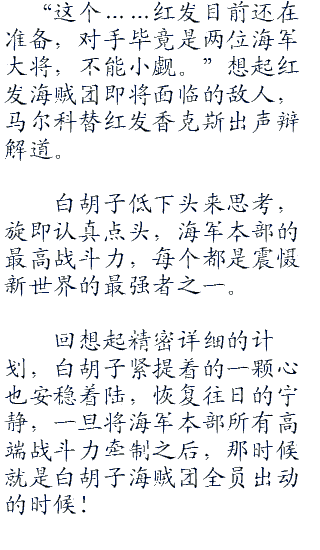 “这个……红发目前还在
准备，对手毕竟是两位海军
大将，不能小觑。”想起红
发海贼团即将面临的敌人，
马尔科替红发香克斯出声辩
解道。
白胡子低下头来思考，
旋即认真点头，海军本部的
最高战斗力，每个都是震慑
新世界的最强者之一。
回想起精密详细的计
划，白胡子紧提着的一颗心
也安稳着陆，恢复往日的宁
静，一旦将海军本部所有高
端战斗力牵制之后，那时候
就是白胡子海贼团全员出动
的时候！